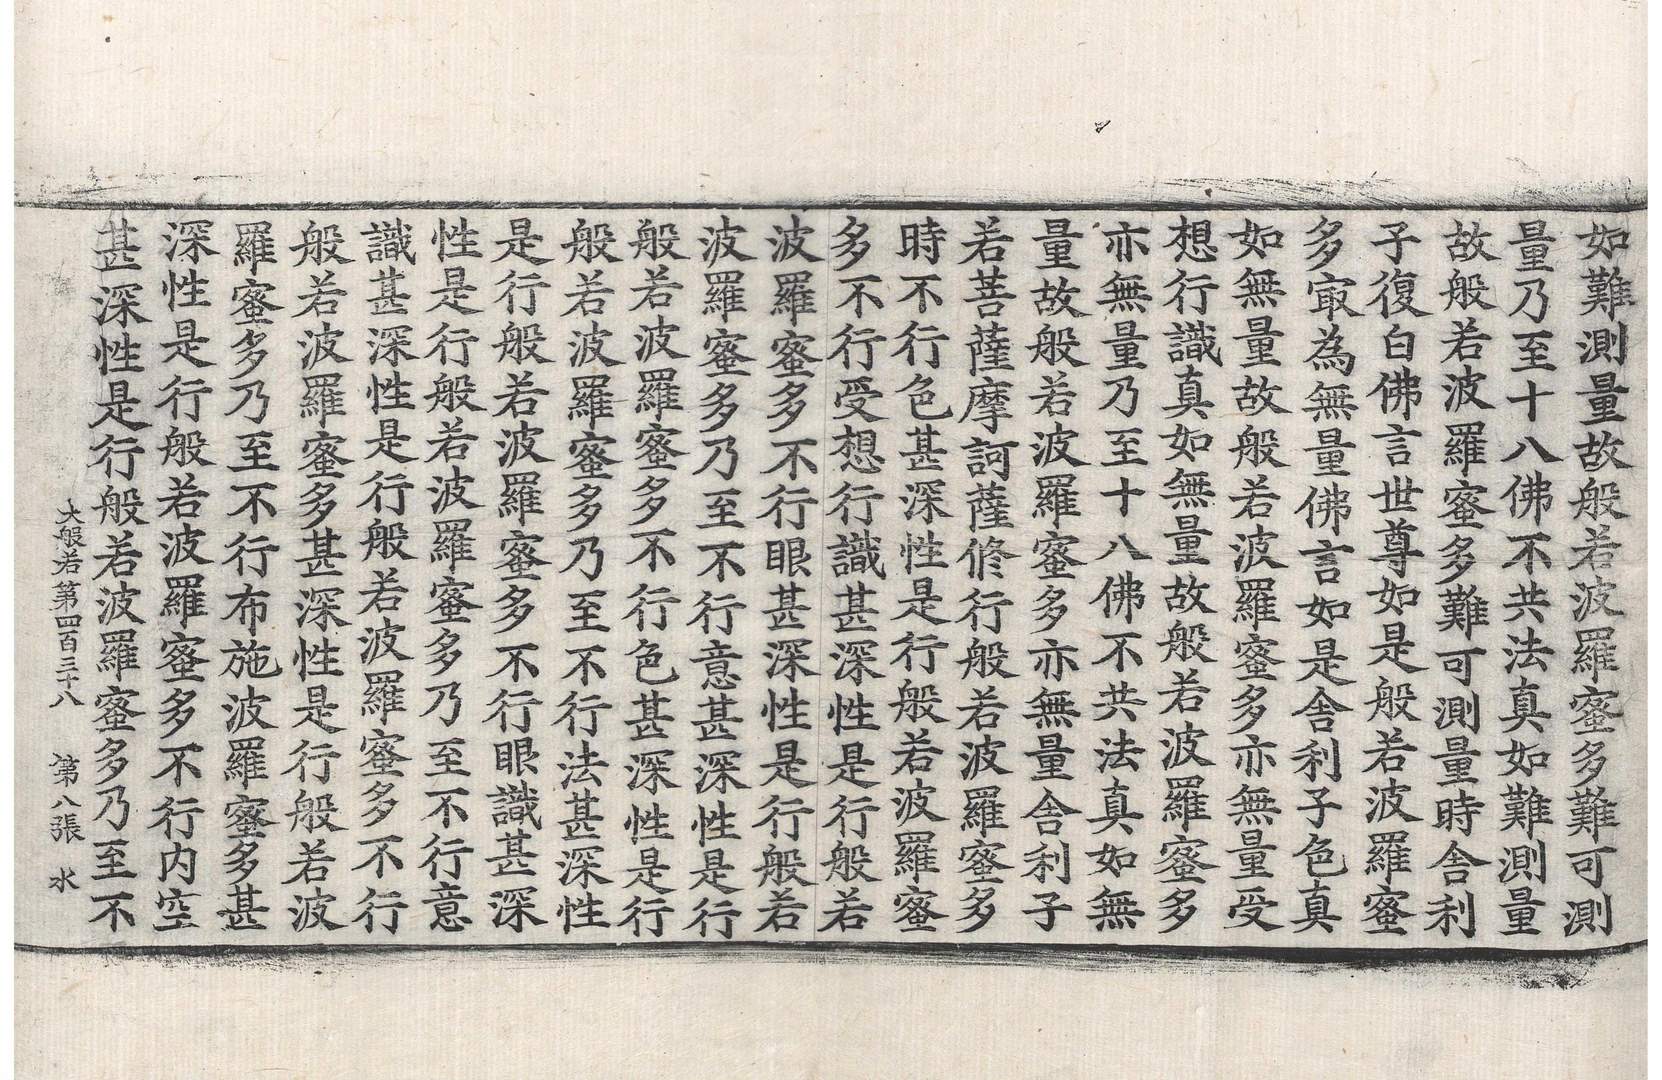 如難測量故般若波羅蜜多難可測
量乃至十八佛不共法真如難測量
故般若波羅蜜多難可測量時舍利
子復白佛言世尊如是般若波羅蜜
多㝡為無量佛言如是舍利子色真
如無量故般若波羅蜜多亦無量受
想行識真如無量故般若波羅蜜多
亦無量乃至十八佛不共法真如無
量故般若波羅蜜多亦無量舍利子
若菩薩摩訶薩修行般若波羅蜜多
時不行色甚深性是行般若波羅蜜
多不行受想行識甚深性是行般若
波羅蜜多不行眼甚深性是行般若
波羅蜜多乃至不行意甚深性是行
般若波羅蜜多不行色甚深性是行
般若波羅蜜多乃至不行法甚深性
是行般若波羅蜜多不行眼識甚深
性是行般若波羅蜜多乃至不行意
識甚深性是行般若波羅蜜多不行
般若波羅蜜多甚深性是行般若波
羅蜜多乃至不行布施波羅蜜多甚
深性是行般若波羅蜜多不行內空
甚深性是行般若波羅蜜多乃至不
大般若第四百三十八 第八張 水